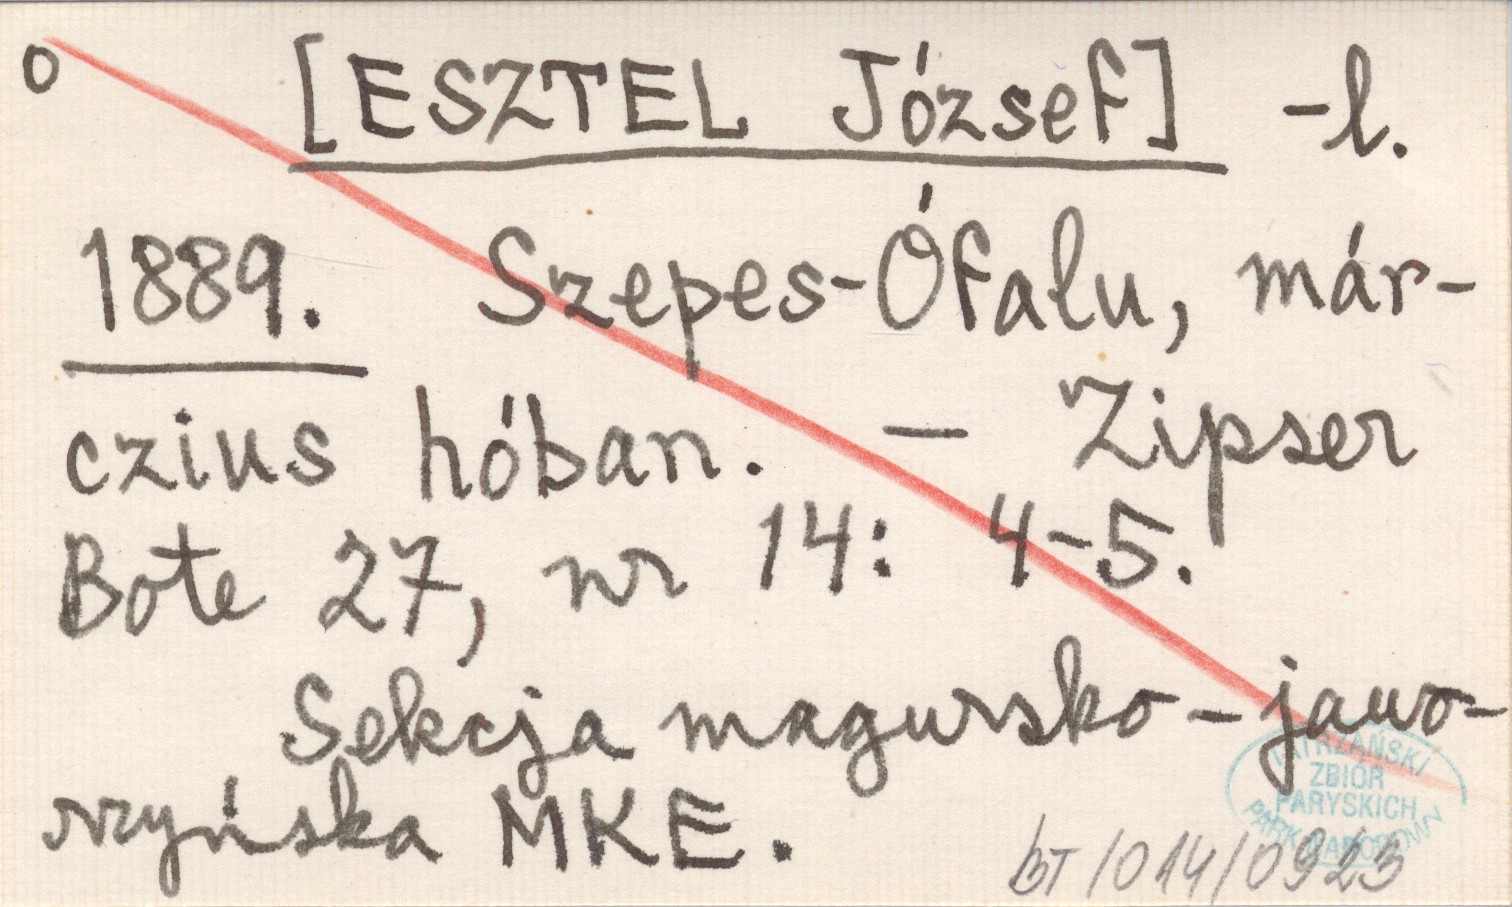 o [ESZTEL József] -l.
1889. Szepes-Ófalu, már-
czius hóban. — Zipser
Bote 27, nr 14: 4-5.
Sekcja magursko-jawo-
rzyńska MKE.
TATRZAŃSKI
ZBIÓR
PARYSKICH
PARK NARODOWY
BT/014/0923